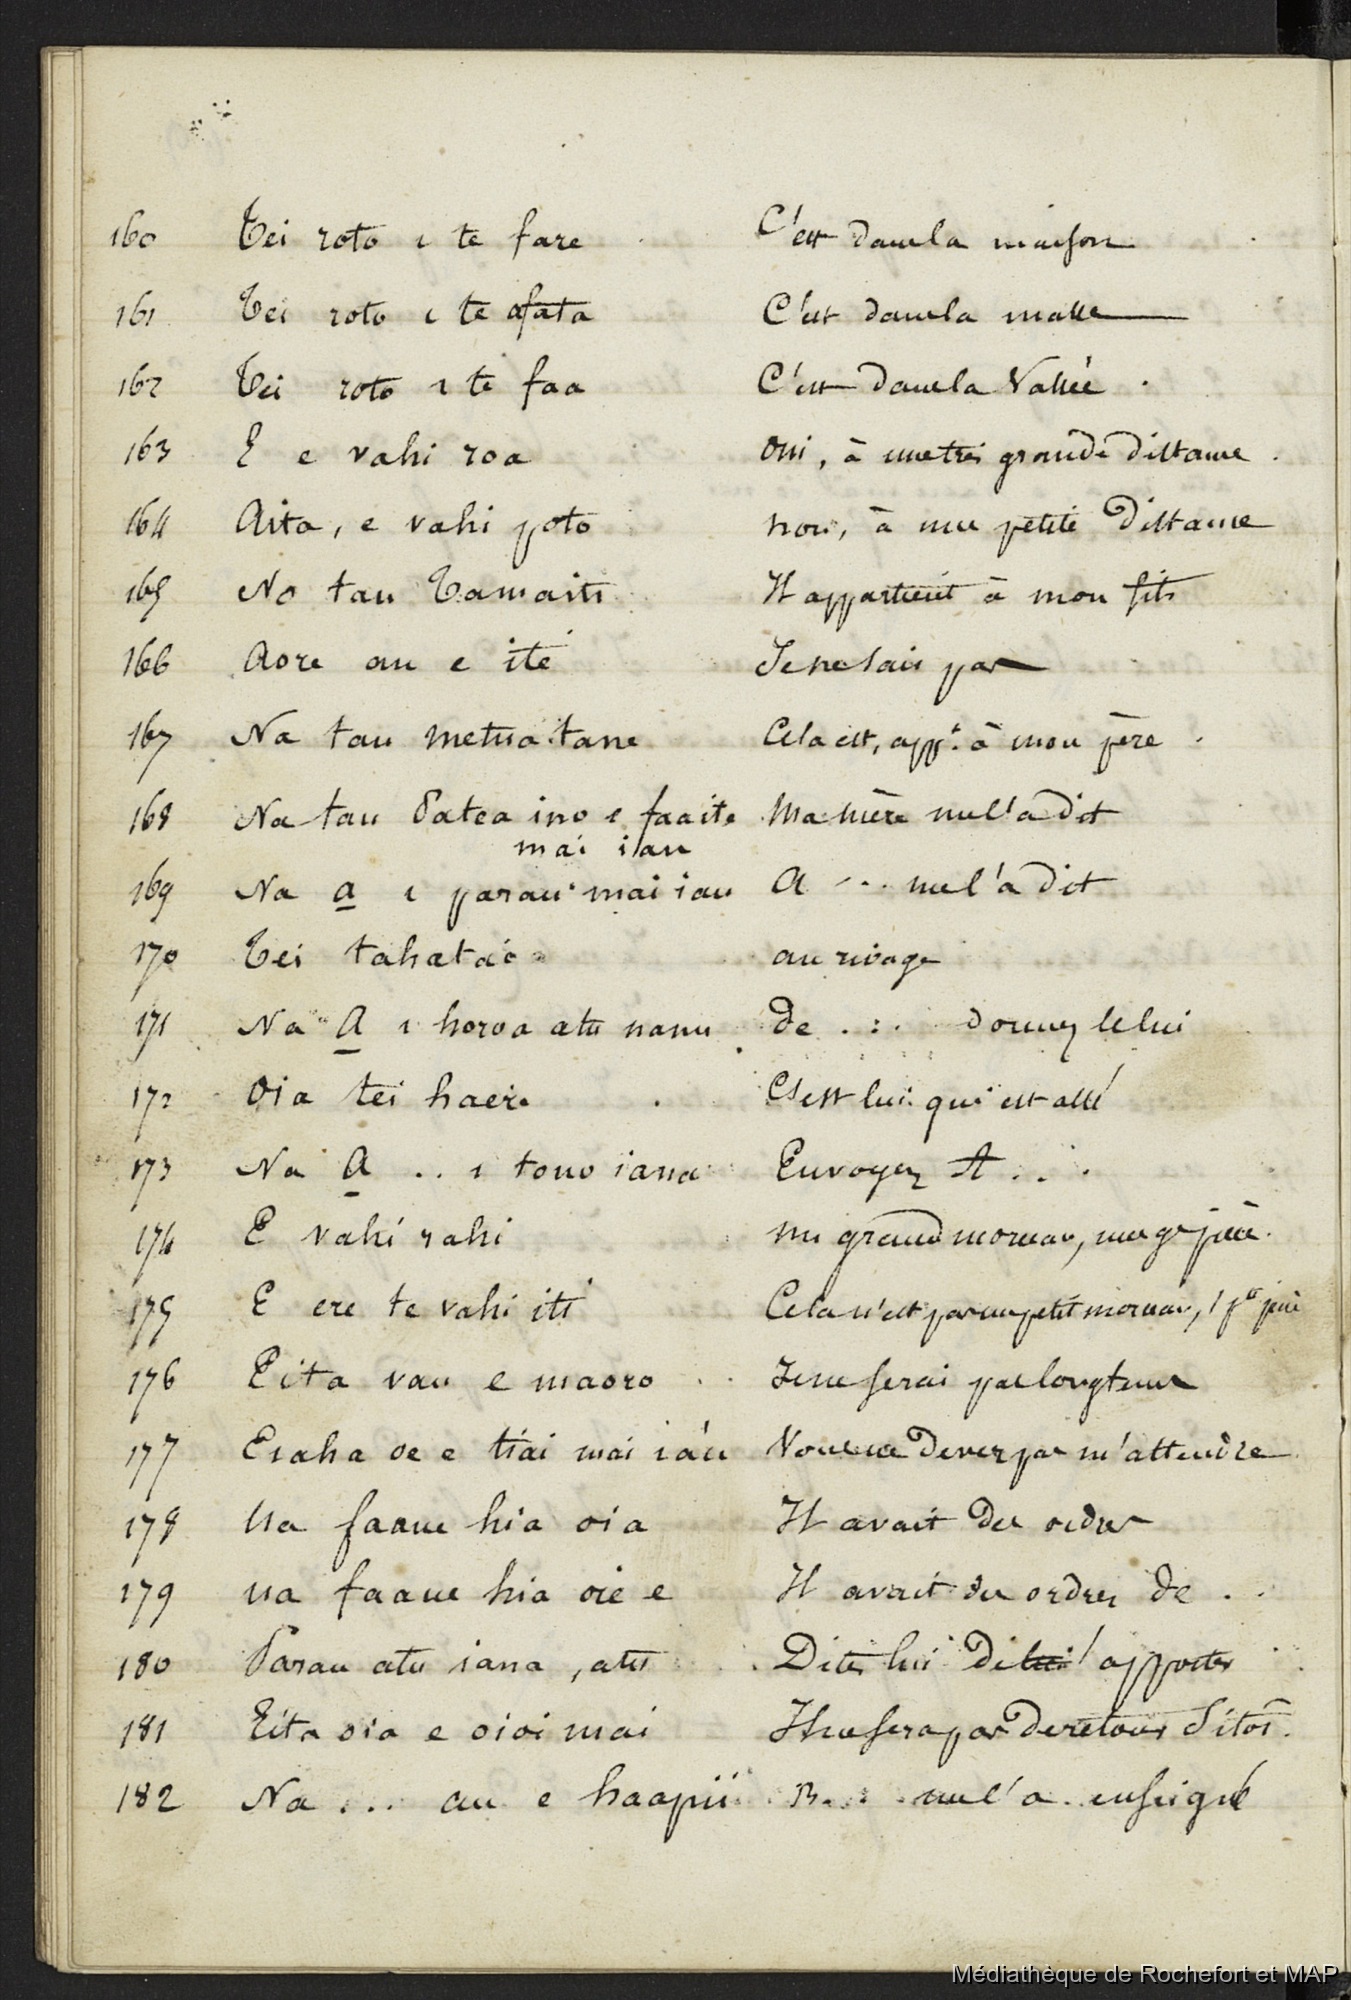 160 Tei roto i te fare C'est dans la maison
161 Tei roto i te afata C'est dans la malle
162 Tei roto i te faa C'est dans la Vallée
163 E e vahi roa Oui, à une très grande distance
164 Aita, e vahi poto non, à une petite distance
165 No tau Tamaiti Il appartient à mon fils
166 Aore au e ite Je ne sais pas
167 Na tau metua tane Cela est, appt. à mon père
168 Na tau Patea ino i faaite Ma mère me l'a dit
mai iau
169 Na a i parau mai iau A ... me l'a dit
170 Tei tahatai au rivage
171 Na A i horoa atu nanu de ... donnez le lui
172 Oia tei haere C'est lui qui est allé
173 Na A .. i tono iana Envoyez A ...
174 E vahi rahi un grand morceau, une gde pièce.
175 E ere te vahi iti Cela n'est pas un petit morceau, 1 pte pièce
176 Eita vau e maoro Je ne serai pas longtems
177 Eiaha oe e tiai mai iau Vous ne devez pas m'attendre
178 Ua faaue hia oia Il avait des ordres
179 ua faaue hia oie e Il avait des ordres de ..
180 Parau atu iana, atu Dites lui d' apporter
181 Eita oia e oioi mai Il ne sera pas de retour sitôt.
182 Na ... au e haapii B... me l'a enseigné
Médiathèque de Rochefort et MAP